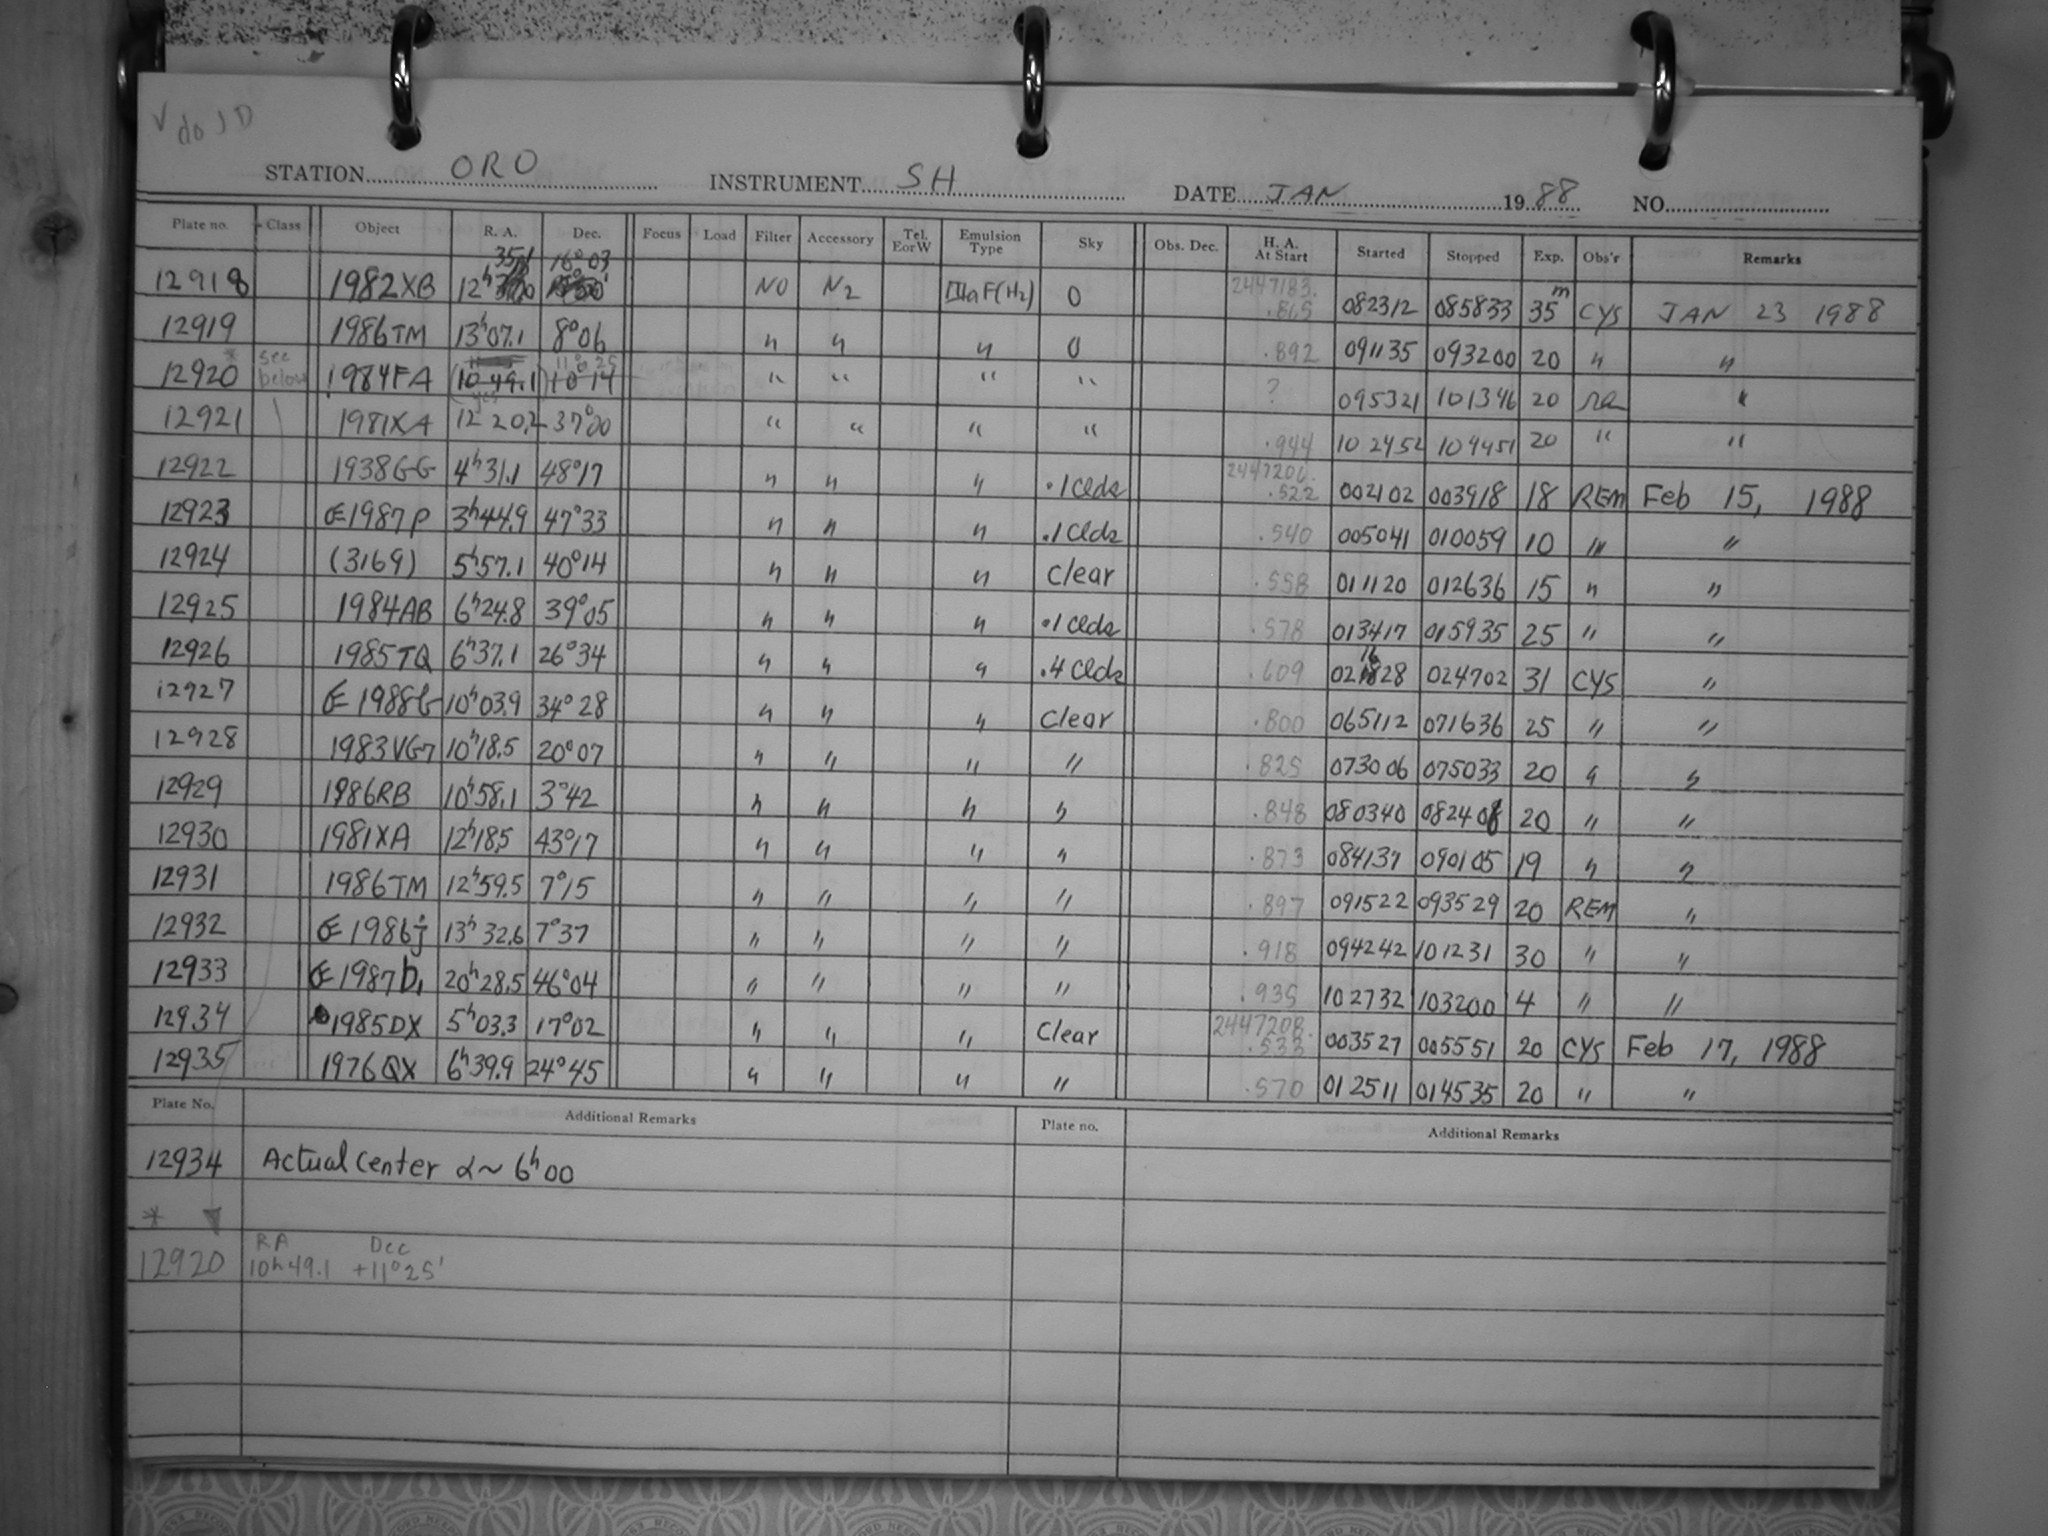 √ do JD
STATION ORO INSTRUMENT SH DATE JAN 1988 NO.
Plate no. Class Object R. A. Dec. Focus Load Filter Accessory Tel. E or W Emulsion Type Sky Obs. Dec. H. A. At Start Started Stopped Exp. Obs'r Remarks
12918 1982XB 12h 35.1 16°03 NO N2 IIIaF(H2) 0 2447183. .865 082312 085833 35m CYS JAN 23 1988
12919 1986TM 13h07.1 8°06 " " " 0 .892 091135 093200 20 " "
12920* see below 1984FA (10 49.1) yes 11°25 10°14 " " " " ? 095321 101346 20 "
12921 1981XA 12 20.2 37°00 " " " " .944 102452 104451 20 " "
12922 1938GG 4h31.1 48°17 " " " .1 Clds 2447206. .522 002102 003918 18 REM Feb 15, 1988
12923 1987P 3h44.9 47°33 " " " .1 Clds .540 005041 010059 10 " "
12924 (3169) 5h57.1 40°14 " " " Clear .558 011120 012636 15 " "
12925 1984AB 6h24.8 39°05 " " " .1 Clds .578 013417 015935 25 " "
12926 1985TQ 6h37.1 26°34 " " " .4 Clds .609 021628 024702 31 CYS "
12927 1988 10h03.9 34°28 " " " Clear .800 065112 071636 25 " "
12928 1983VG7 10h18.5 20°07 " " " " .825 073006 075033 20 " "
12929 1986RB 10h58.1 3°42 " " " " .848 080340 082408 20 " "
12930 1981XA 12h18.5 43°17 " " " " .873 084137 090105 19 " "
12931 1986TM 12h59.5 7°15 " " " " .897 091522 093529 20 REM "
12932 1986j 13h32.6 7°37 " " " " .918 094242 101231 30 " "
12933 1987b1 20h28.5 46°04 " " " " .935 102732 103200 4 " "
12934 1985DX 5h03.3 17°02 " " " Clear 2447208. .533 003527 005551 20 CYS Feb 17, 1988
12935 1976QX 6h39.9 24°45 " " " " .570 012511 014535 20 " "
Plate No. Additional Remarks Plate no. Additional Remarks
12934 Actual center α~ 6h00
*
RA Dec
12920 10h49.1 +11°25'